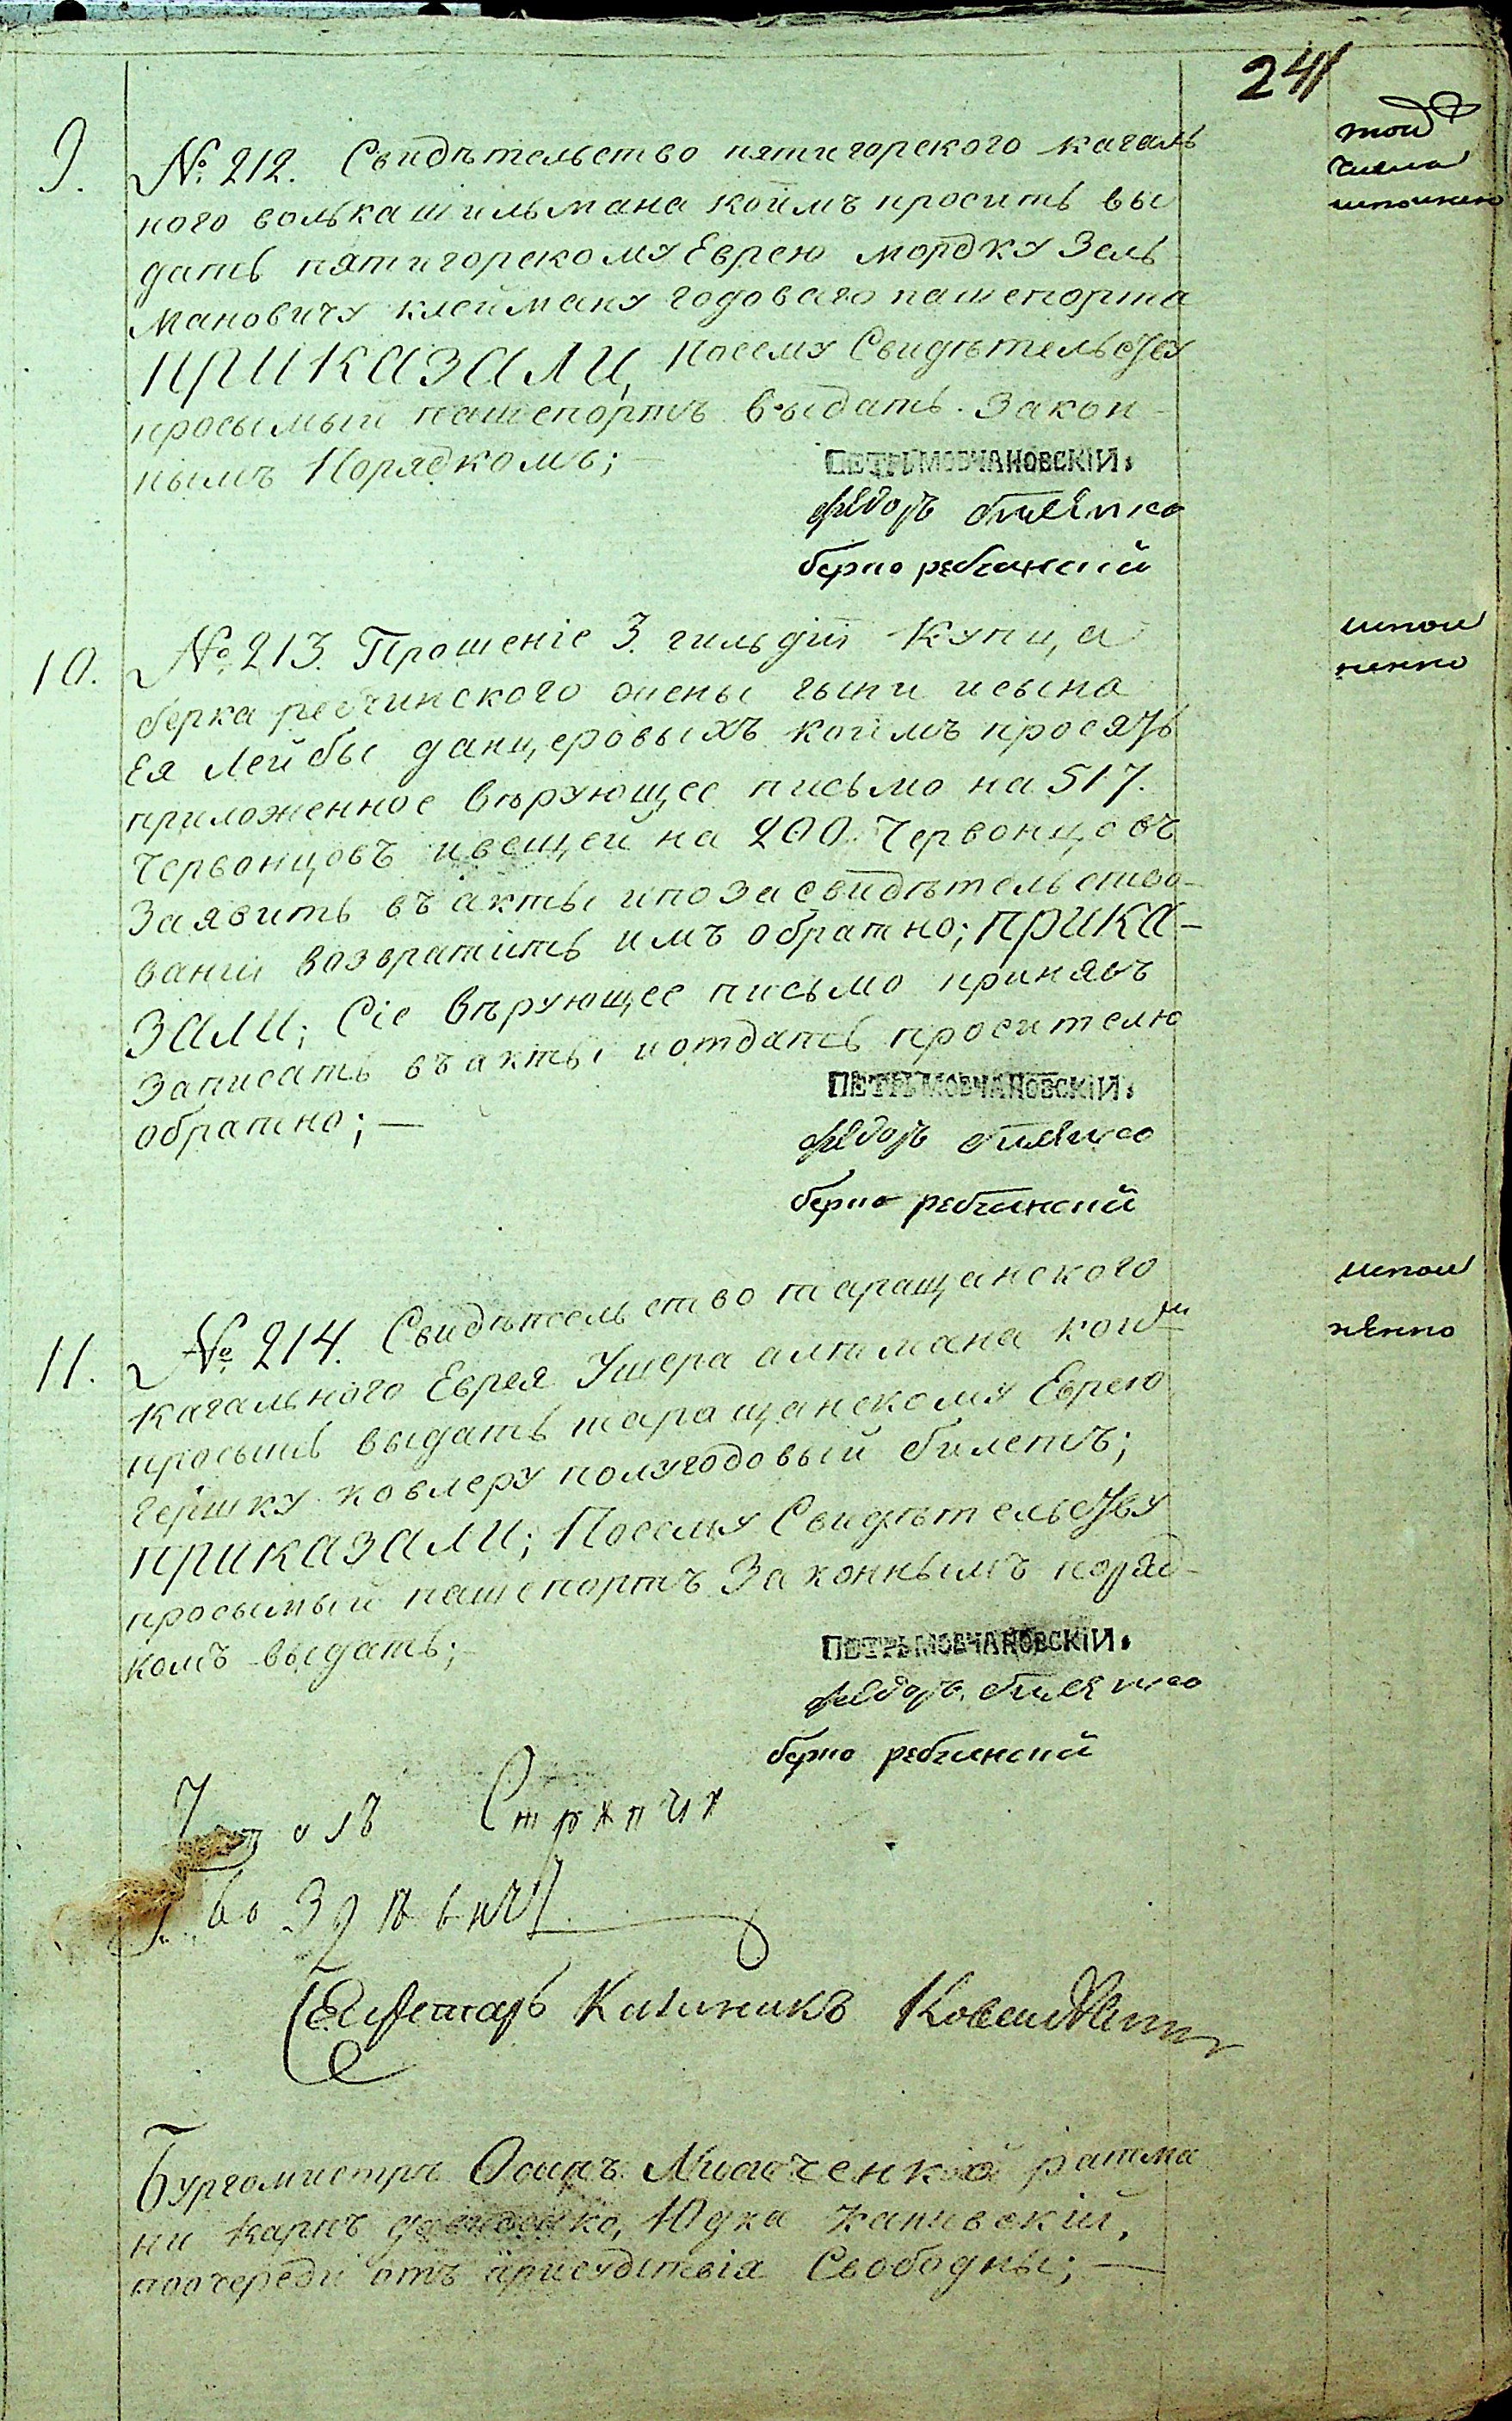 241
9.
№. 212. Свидѣтельство пятигорского кагаль
ного волька шильмана коимъ просить вы
дать пятигорскому Еврею мордку Зель
мановичу клейману годоваго пашепорта
ПРИКАЗАЛИ, Посему Свидѣтельству
просымый пашепортъ выдать. Закон-
нымъ Порядкомъ;
того
числа
исполнено
ПЕТРЪ МОВЧАНОВСКІЙ.
федоръ
берко ребчинский
10.
№. 213. Прошеніе 3. гильдіи Купца
берка ребчинского жены гыни и сына
Ея Лейбы данцеровыхъ коимъ просять
приложенное вѣрующее письмо на 517.
Червонцовъ и вещей на 200. Червонцовъ
Заявить въ акты и по засвидѣтельство-
вании возвратить имъ обратно; ПРИКА-
ЗАЛИ; Сіе вѣрующее письмо принявъ
Записать въ акты и отдать просителю
обратно; —
испол
ненно
ПЕТРЪ МОВЧАНОВСКІЙ.
федоръ
берко ребчинский
11.
№. 214. Свидѣтельство таращанского
кагального Еврея Ушера алтмана коим
просыть выдать таращанскому Еврею
гершку ковлеру полугодовый билетъ;
ПРИКАЗАЛИ; Посему Свидѣтельству
просымый пашепортъ Законнымъ поряд-
комъ выдать;
испол
нЕнно
ПЕТРЪ МОВЧАНОВСКІЙ.
федоръ
берко ребчинский
Стряпчих
Секретарь Калиникъ
Бургомистръ Осипъ ратма
ни Карпъ Юдка Каневскій,
поочереди отъ присудствія Свободны; —